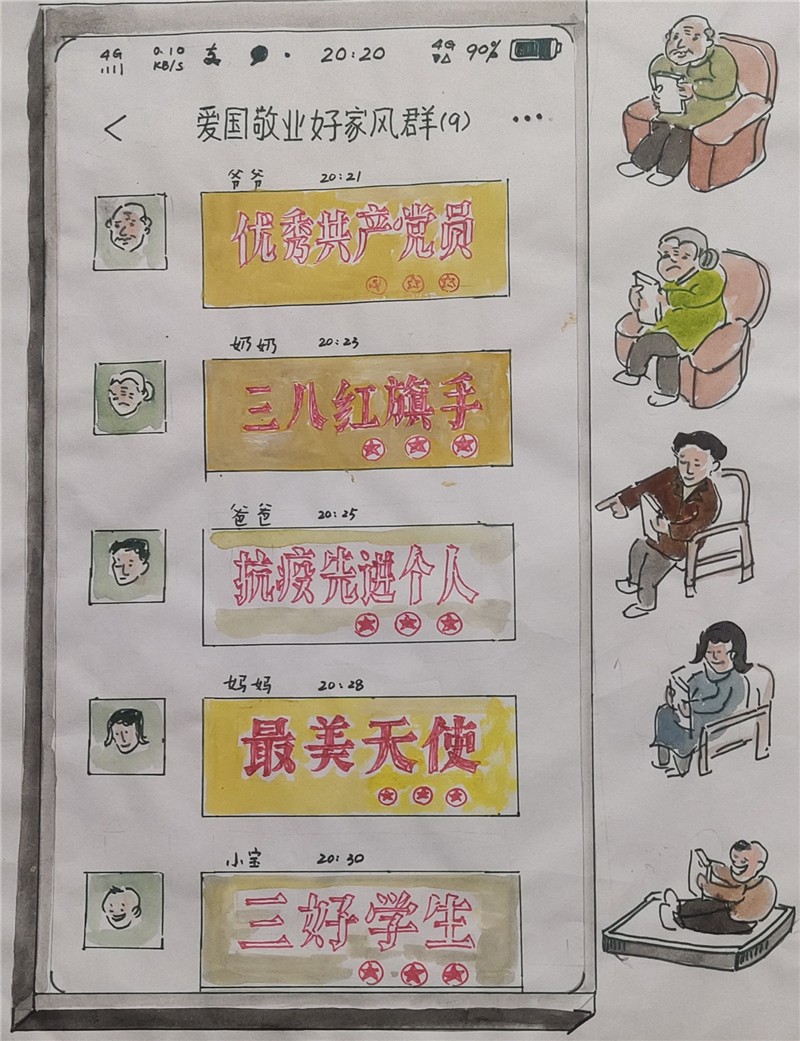 4G 0.10 KB/S 20:20 4G 90%
< 爱国敬业好家风群(9) ...
爷爷 20:21
优秀共产党员
奶奶 20:23
三八红旗手
爸爸 20:25
抗疫先进个人
妈妈 20:28
最美天使
小宝 20:30
三好学生